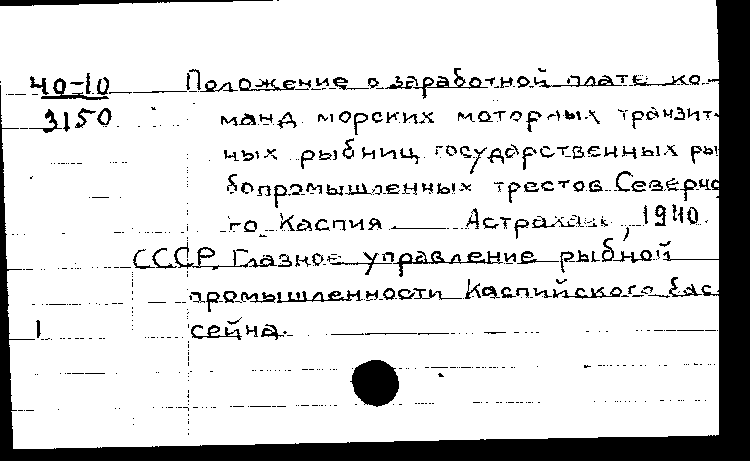 40-10
3150
Положение о заработной плате ко-
манд морских моторных транзит-
ных рыбниц государственных ры
бопромышленных трестов Северно
го Каспия. Астрахань, 1940.
СССР. Главное управление рыбной
промышленности Каспийского бас
сейна.
1